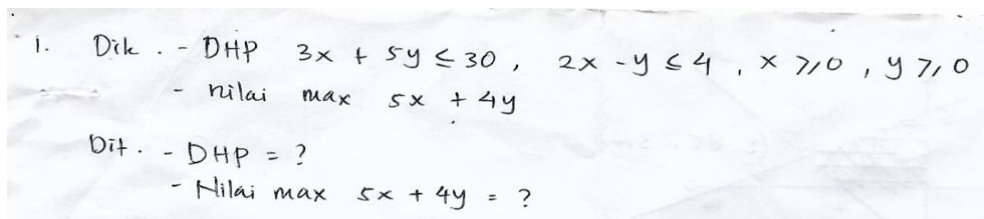 1. Dik. - DHP 3x + 5y ≤ 30, 2x - y ≤ 4, x ≥ 0, y ≥ 0
- nilai max 5x + 4y
Dit. - DHP = ?
- Nilai max 5x + 4y = ?